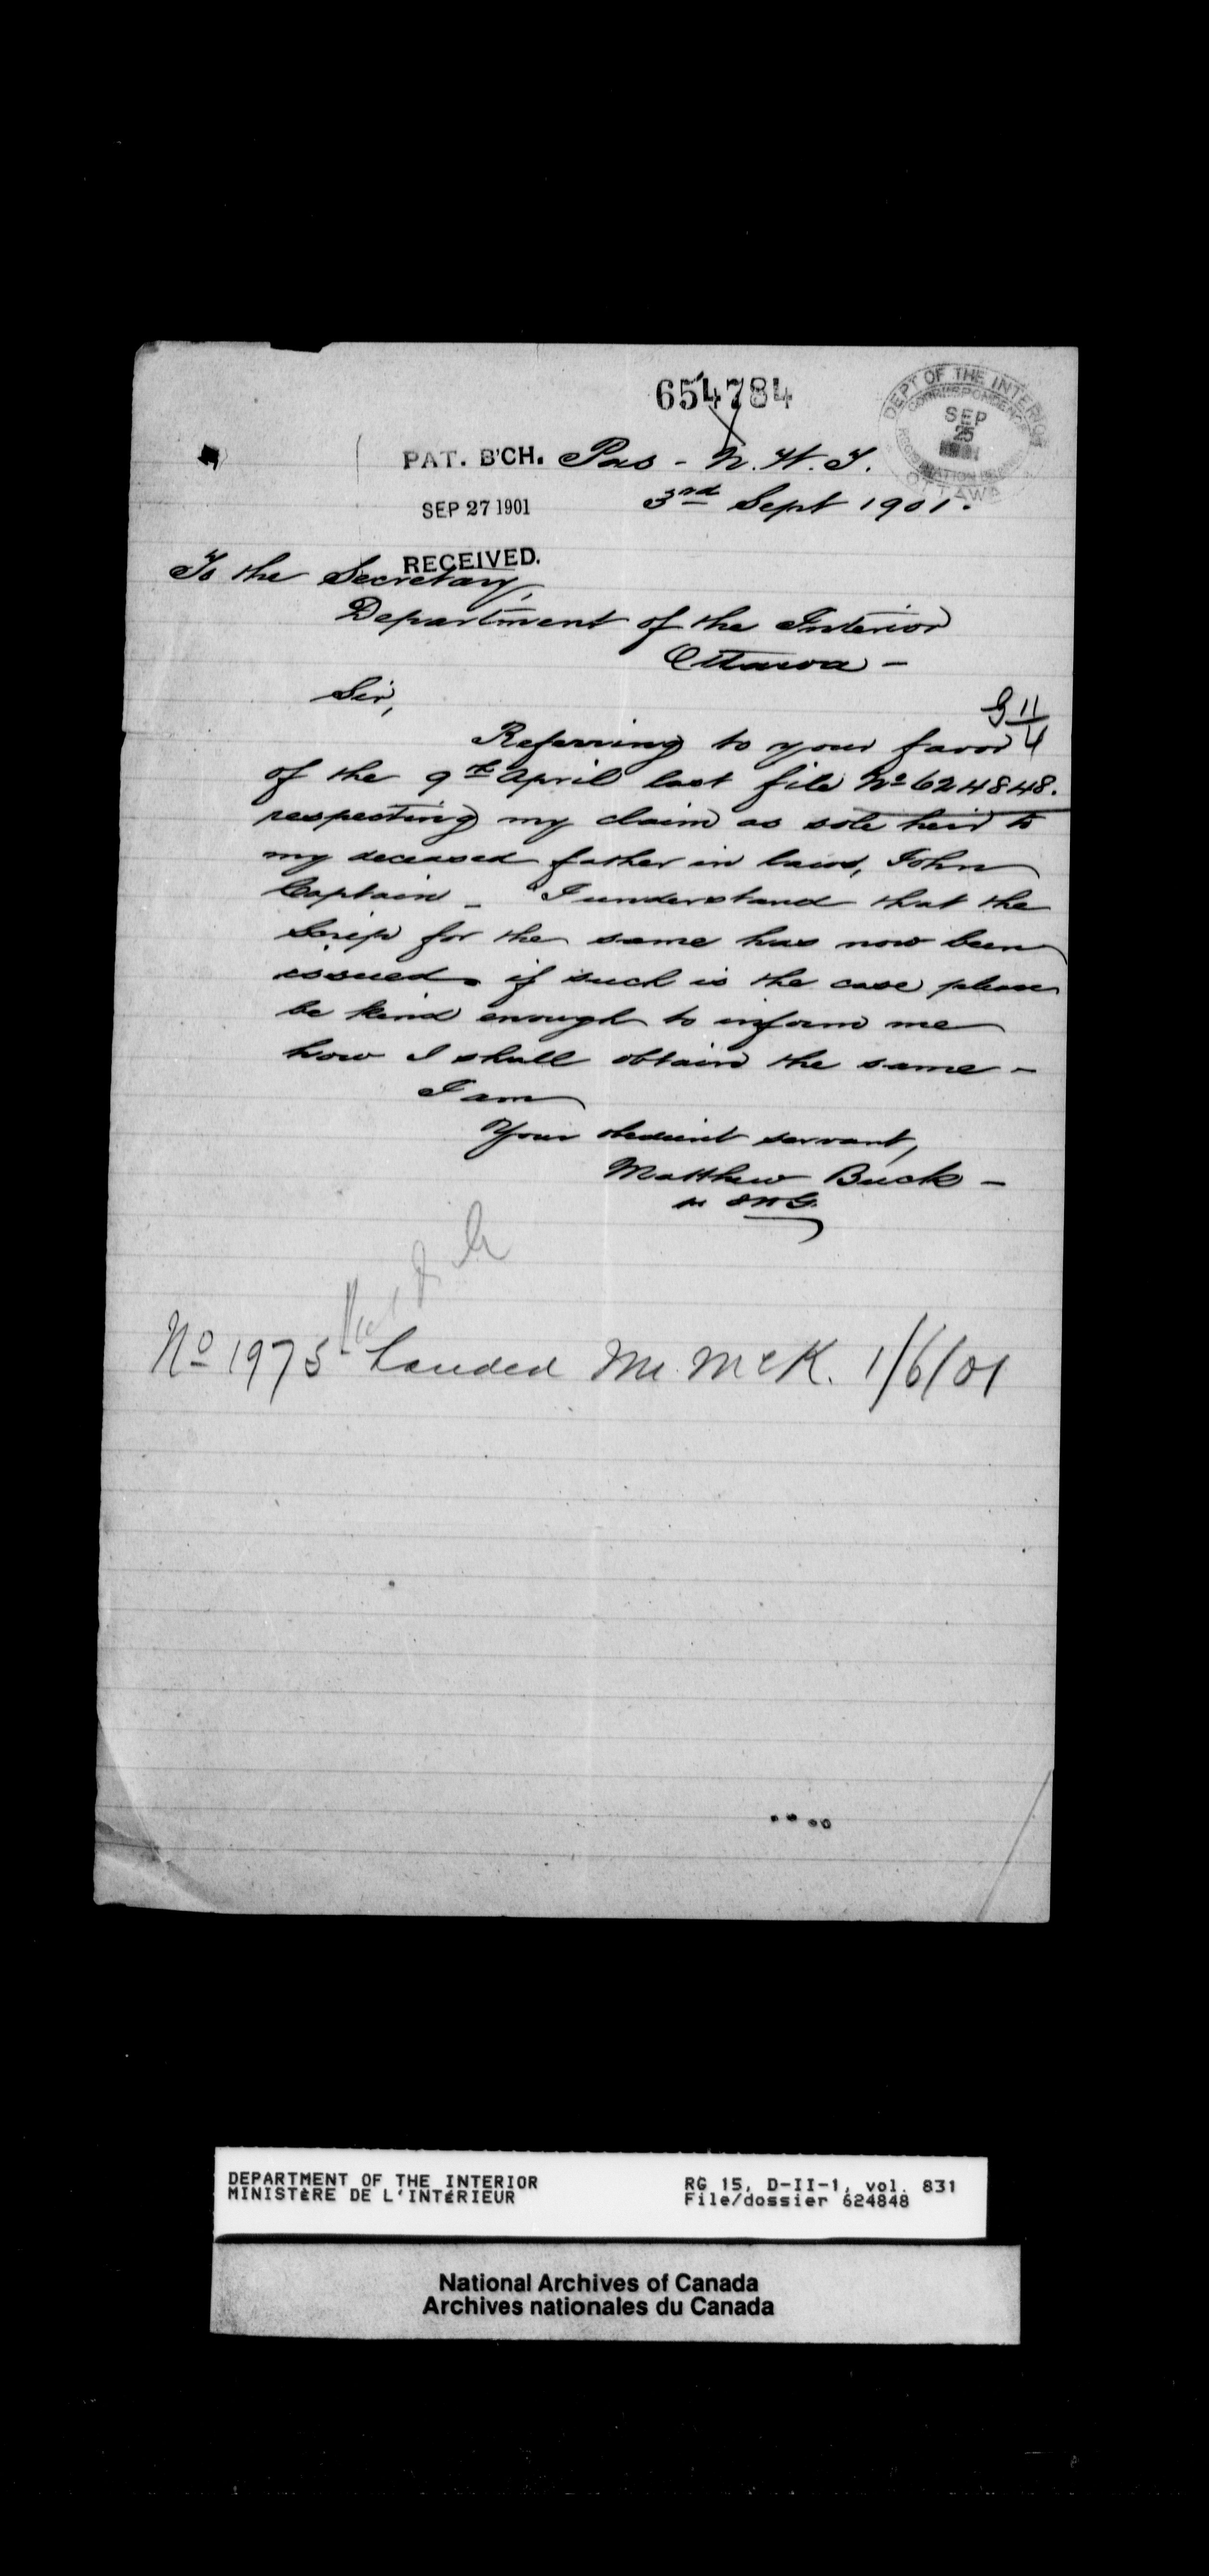 654784
DEPT OF THE INTERIOR
CORRESPONDENCE
SEP
25
1901
REGISTRATION BRANCH
OTTAWA
PAT. B'CH. Pas - N. W. T.
SEP 27 1901 3rd Sept 1901.
RECEIVED.
To the Secretary,
Department of the Interior
Ottawa -
Sir,
Referring to your favor
of the 9th April last file No 624848.
respecting my claim as sole heir to
my deceased father in law, John
Captain - I understand that the
Scrip for the same has now been
issued. if such is the case please
be kind enough to inform me
how I shall obtain the same -
I am
Your obedient servant,
Matthew Buck -
No 1975 handed Mr. McK. 1/6/01
DEPARTMENT OF THE INTERIOR RG 15, D-II-1, vol. 831
MINISTÈRE DE L'INTÉRIEUR File/dossier 624848
National Archives of Canada
Archives nationales du Canada